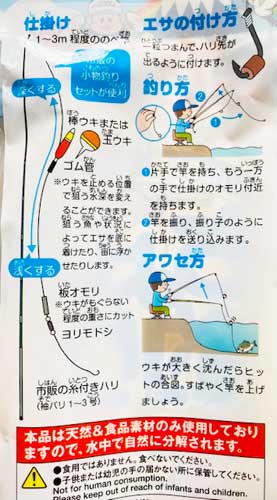 仕掛け
1～3m程度ののべ
小物釣り
セットが便利
深くする
棒ウキまたは
玉ウキ
ゴム管
※ウキを止める位置
で狙う水深を変え
ることができます。
狙う魚や状況に
よってエサを底に
着けたり、宙に浮か
せたりします。
浅くする
板オモリ
※ウキがもぐらない
程度の重さにカット
ヨリモドシ
市販の糸付きハリ
(袖バリ1～3号)
エサの付け方
一粒つまんで、ハリ先が
出るように付けます。
釣り方
①
②
①片手で竿を持ち、もう一方
の手で仕掛けのオモリ付近
を持ちます。
②竿を振り、振り子のように
仕掛けを送り込みます。
アワセ方
ウキが大きく沈んだらヒッ
トの合図。すばやく竿を上げ
ましょう。
本品は天然&食品素材のみ使用しており
ますので、水中で自然に分解されます。
●食用ではありません。食べないでください。
●子供または幼児の手の届かない所に保管してください。
Not for human consumption.
Please keep out of reach of infants and children.